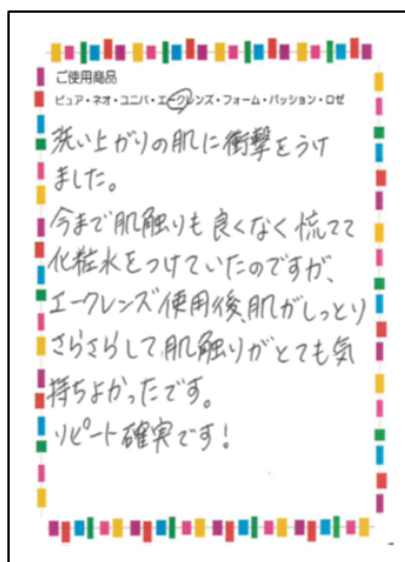 ご使用商品
ピュア・ネオ・ユニバ・エークレンズ・フォーム・パッション・ロゼ
洗い上がりの肌に衝撃をうけ
ました。
今まで肌触りも良くなく慌てて
化粧水をつけていたのですが、
エークレンズ使用後、肌がしっとり
さらさらして肌触りがとても気
持ちよかったです。
リピート確実です！